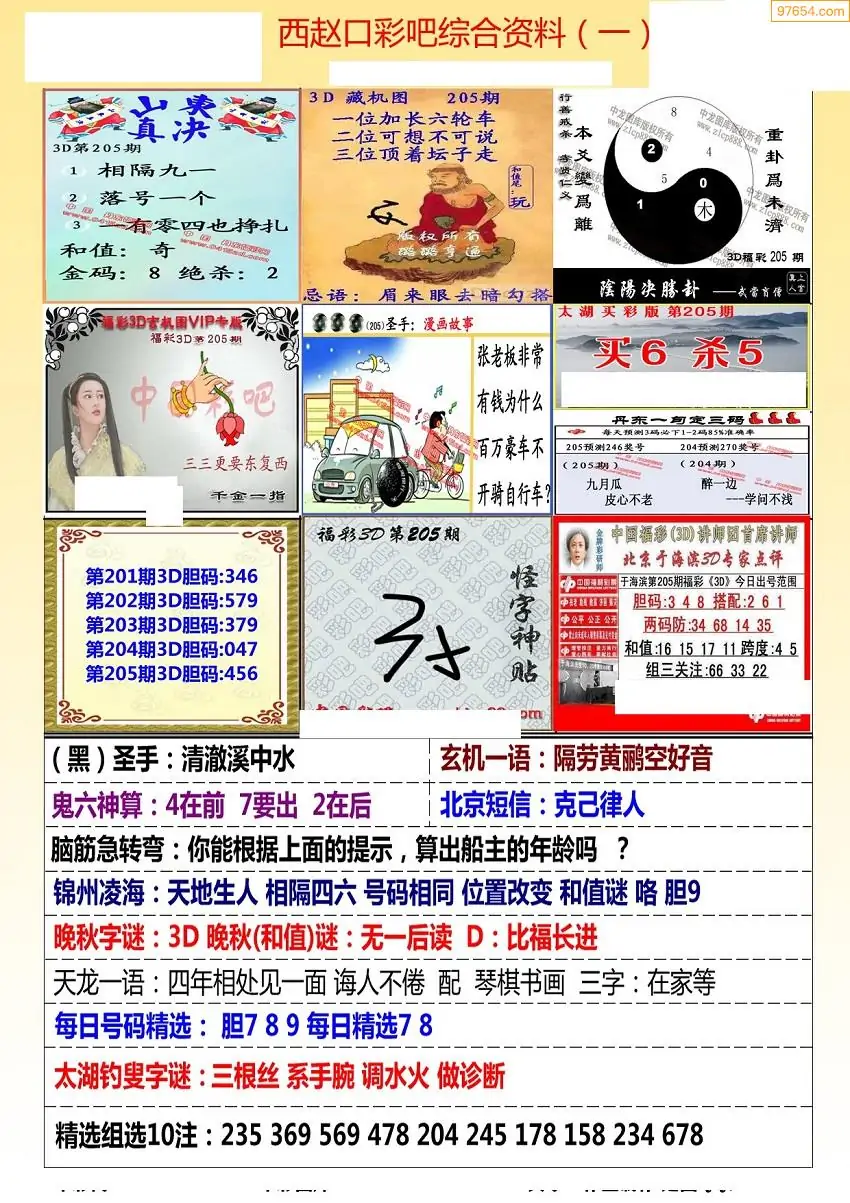 97654.com
西赵口彩吧综合资料（一）
山东
真决
3D第205期
1 相隔九一
2 落号一个
3 有零四也挣扎
和值：奇
金码：8 绝杀：2
3D 藏机图 205期
一位加长六轮车
二位可想不可说
三位顶着坛子走
和值尾：玩
版权所有
忌语：眉来眼去暗勾搭
行善戒杀 孝贤仁义
本爻變爲離
重卦爲未濟
中龙图库版权所有
www.zlcp888.com
8
2
4
5
0
1
木
3D福彩 205 期
陰陽决勝卦 ——武當肖僧
福彩3D玄机图VIP专版
福彩3D第205期
中国彩吧
三三更要东复西
千金一指
(205)圣手：漫画故事
张老板非常
有钱为什么
百万豪车不
开骑自行车?
太湖买彩版 第205期
买6 杀5
丹东一句定三码
每天预测3码必下1-2码85%准确率
205预测246奖号 204预测270奖号
(205期) (204期)
九月瓜 醉一边
皮心不老 ---学问不浅
第201期3D胆码:346
第202期3D胆码:579
第203期3D胆码:379
第204期3D胆码:047
第205期3D胆码:456
福彩3D第205期
怪字神贴
金牌彩研师
中国福彩(3D)讲师团首席讲师
北京于海滨3D专家点评
中国福利彩票
于海滨第205期福彩《3D》今日出号范围
胆码:3 4 8 搭配:2 6 1
两码防:34 68 14 35
和值:16 15 17 11 跨度:4 5
组三关注:66 33 22
公平 公正 公开
（黑）圣手：清澈溪中水
玄机一语：隔劳黄鹂空好音
鬼六神算：4在前 7要出 2在后
北京短信：克己律人
脑筋急转弯：你能根据上面的提示，算出船主的年龄吗 ？
锦州凌海：天地生人 相隔四六 号码相同 位置改变 和值谜 咯 胆9
晚秋字谜：3D 晚秋(和值)谜：无一后读 D：比福长进
天龙一语：四年相处见一面 诲人不倦 配 琴棋书画 三字：在家等
每日号码精选： 胆7 8 9 每日精选7 8
太湖钓叟字谜：三根丝 系手腕 调水火 做诊断
精选组选10注：235 369 569 478 204 245 178 158 234 678